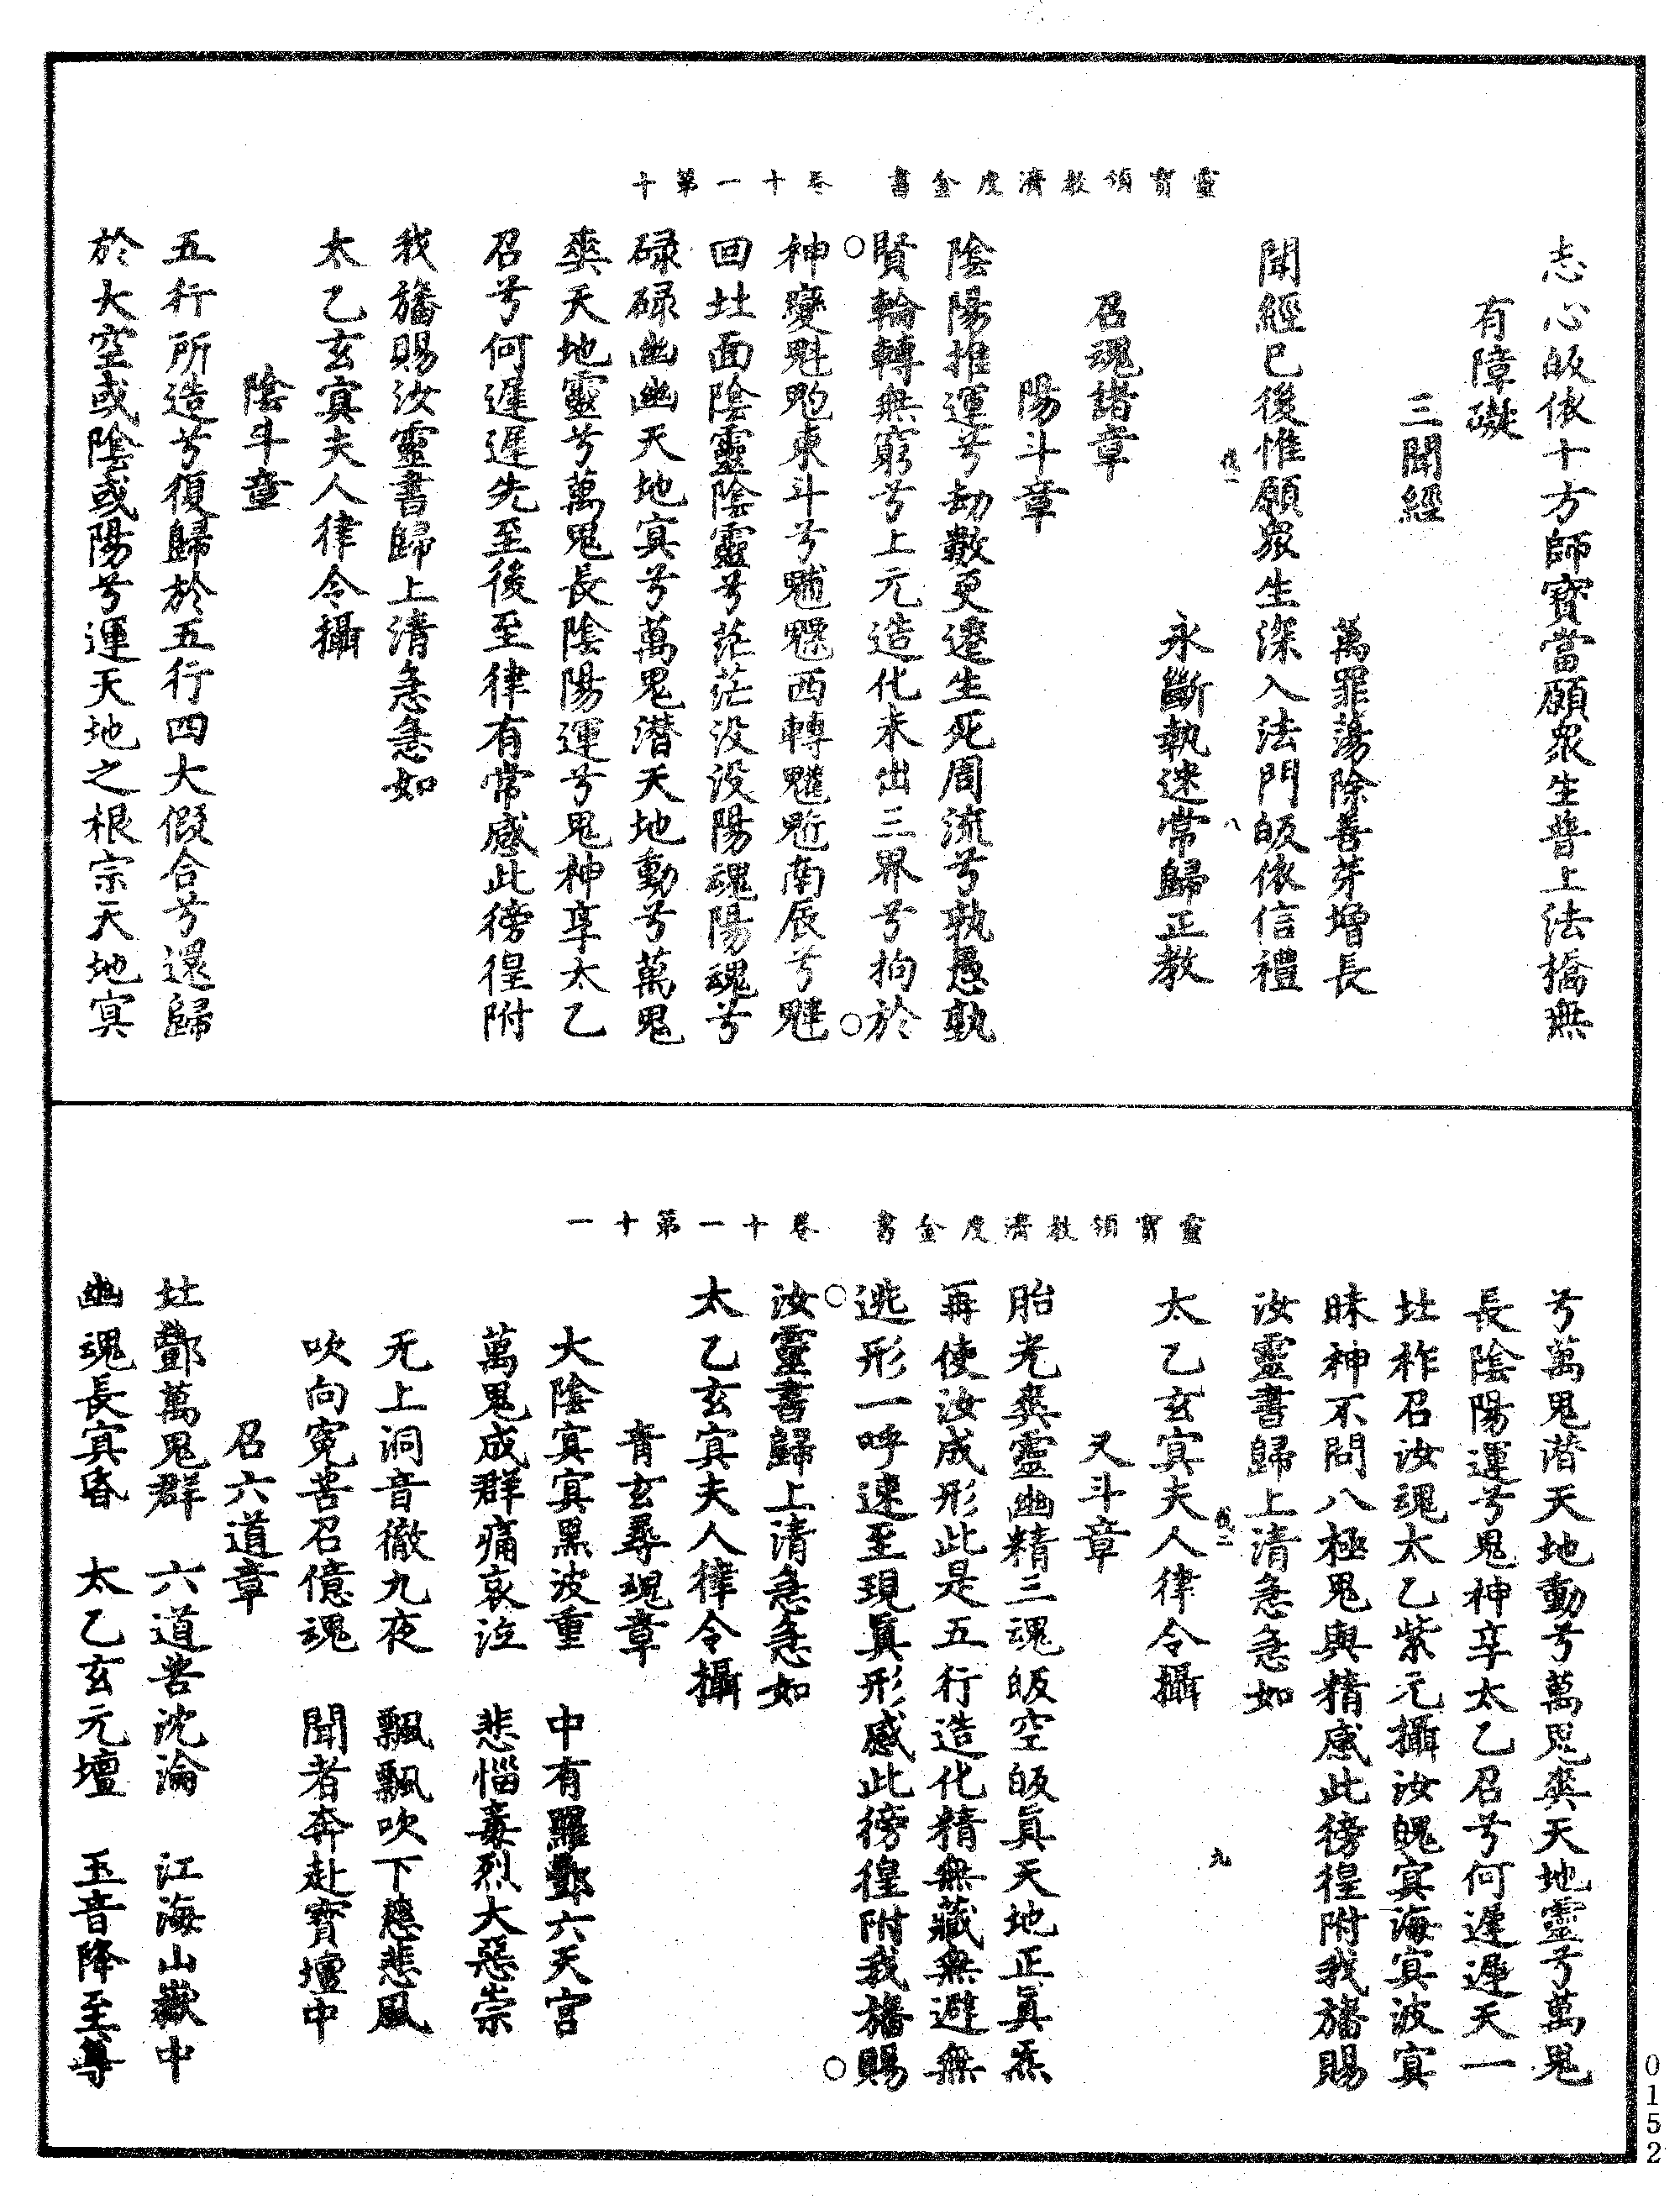 靈寶領教濟度金書　卷十一第十
志心皈依十方師寶當願眾生普上法橋無
有障礙
三聞經
萬罪蕩除善芽增長
聞經已後惟願眾生深入法門皈依信禮
八
永斷執迷常歸正教
召魂諸章
陽斗章
陰陽推運兮劫數更遷生死周流兮孰愚孰
賢輪轉無窮兮上元造化未出三界兮拘於
神變魁東斗兮西轉南辰兮
回面陰靈陰靈兮茫茫沒沒陽魂陽魂兮
碌碌幽幽天地㝠兮萬鬼潛天地動兮萬鬼
爽天地靈兮萬鬼長陰陽運兮鬼神享太乙
召兮何遲遲先至後至律有常感此徬徨附
我旛賜汝靈書歸上清急急如
太乙玄㝠夫人律令攝
陰斗章
五行所造兮復歸於五行四大假合兮還歸
於大空或陰或陽兮運天地之根宗天地㝠
靈寶領教濟度金書　卷十一第十一
兮萬鬼潛天地動兮萬鬼爽天地靈兮萬鬼
長陰陽運兮鬼神享太乙召兮何遲遲天一
柞召汝魂太乙紫元攝汝魄㝠海㝠波㝠
昧神不問八極鬼與精感此徬徨附我旛賜
汝靈書歸上清急急如
九
太乙玄㝠夫人律令攝
又斗章
胎光爽靈幽精三魂皈空皈真天地正真炁
再使汝成形此是五行造化精無藏無避無
逃形一呼速至現真形感此徬徨附我旛賜
汝靈書歸上清急急如
太乙玄㝠夫人律令攝
青玄尋魂章
大陰㝠㝠黑波重　中有羅酆六天宮
萬鬼成群痛哀泣　悲惱毒烈大惡崇
无上洞音徹九夜　飄飄吹下慈悲風
吹向冤苦召億魂　聞者奔赴寶壇中
召六道章
酆萬鬼群　六道苦沈淪　江海山嶽中
幽魂長㝠昏　太乙玄元壇　玉音降至尊
0152